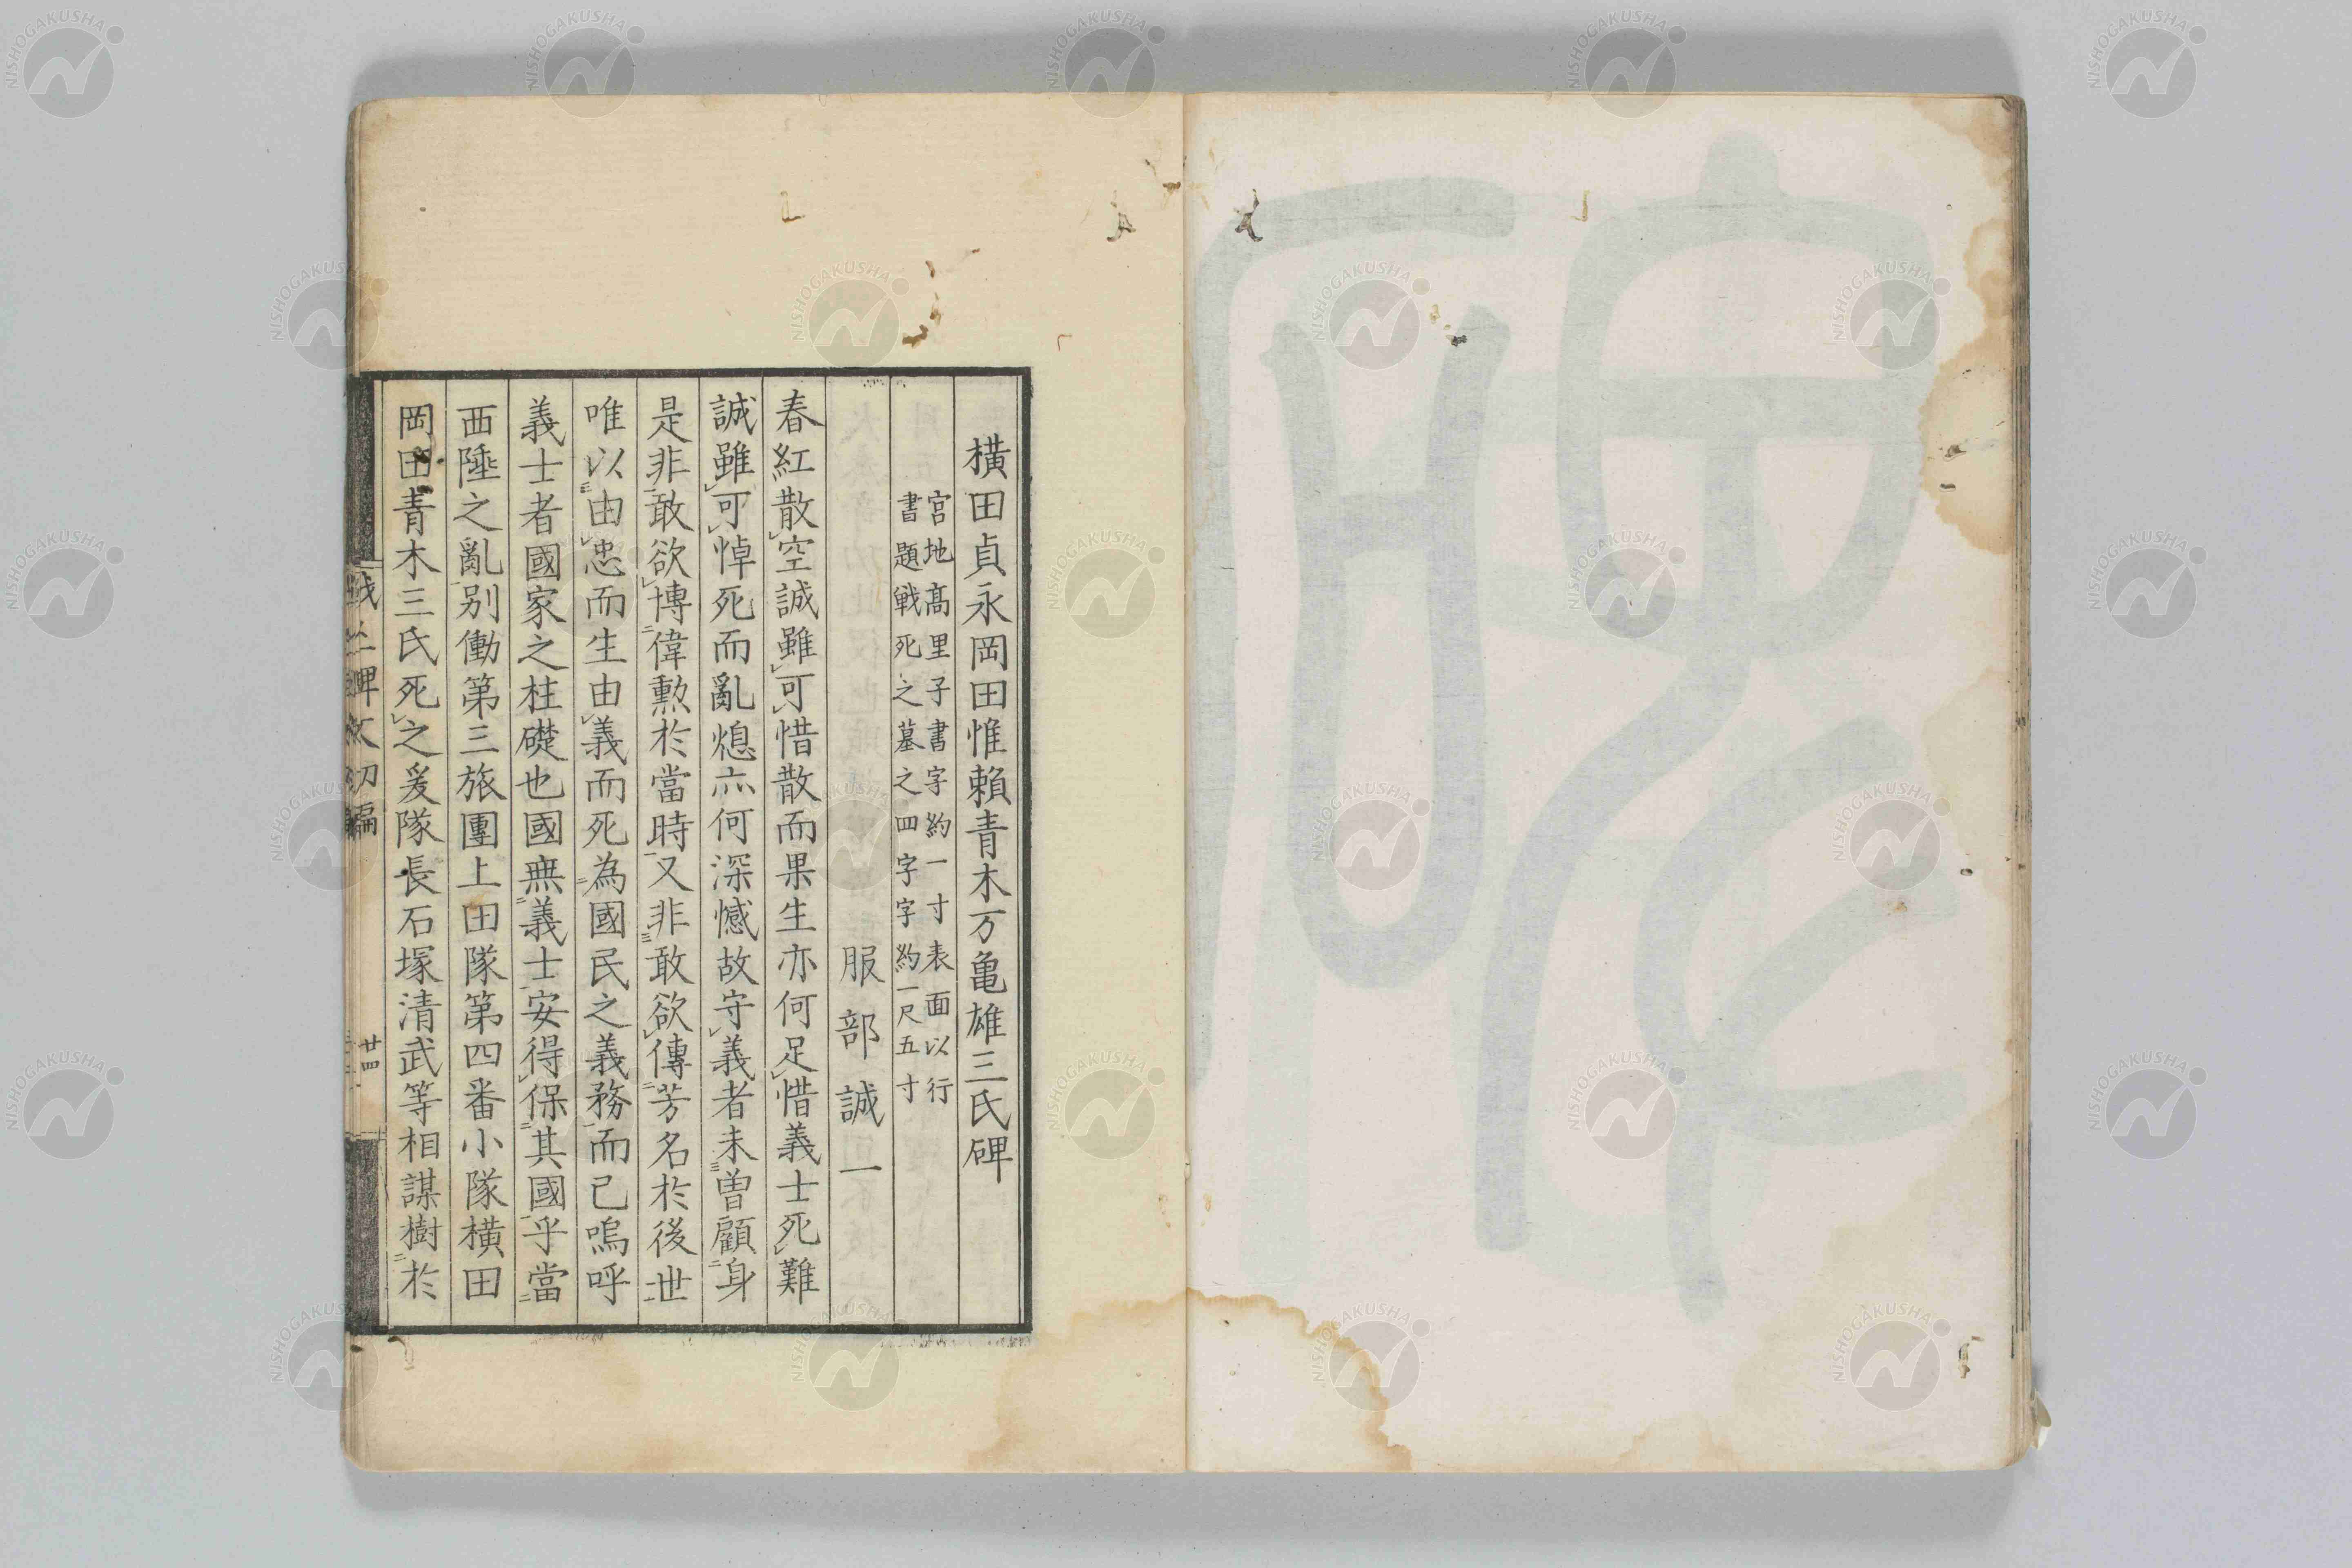 橫田貞永岡田惟賴青木万亀雄三氏碑
宮地高里子書字約一寸表面以行
書題戦死之墓之四字字約一尺五寸
服部誠一
春紅散空誠雖可惜散而果生亦何足惜義士死難
誠雖可悼死而亂熄亦何深憾故守義者未曽顧身
是非敢欲博偉勲於當時又非敢欲傳芳名於後世
唯以由忠而生由義而死為國民之義務而已嗚呼
義士者國家之柱礎也國無義士安得保其國乎當
西陲之亂別働第三旅團上田隊第四番小隊橫田
岡田青木三氏死之爰隊長石塚清武等相謀樹於
碑文初編
廿四